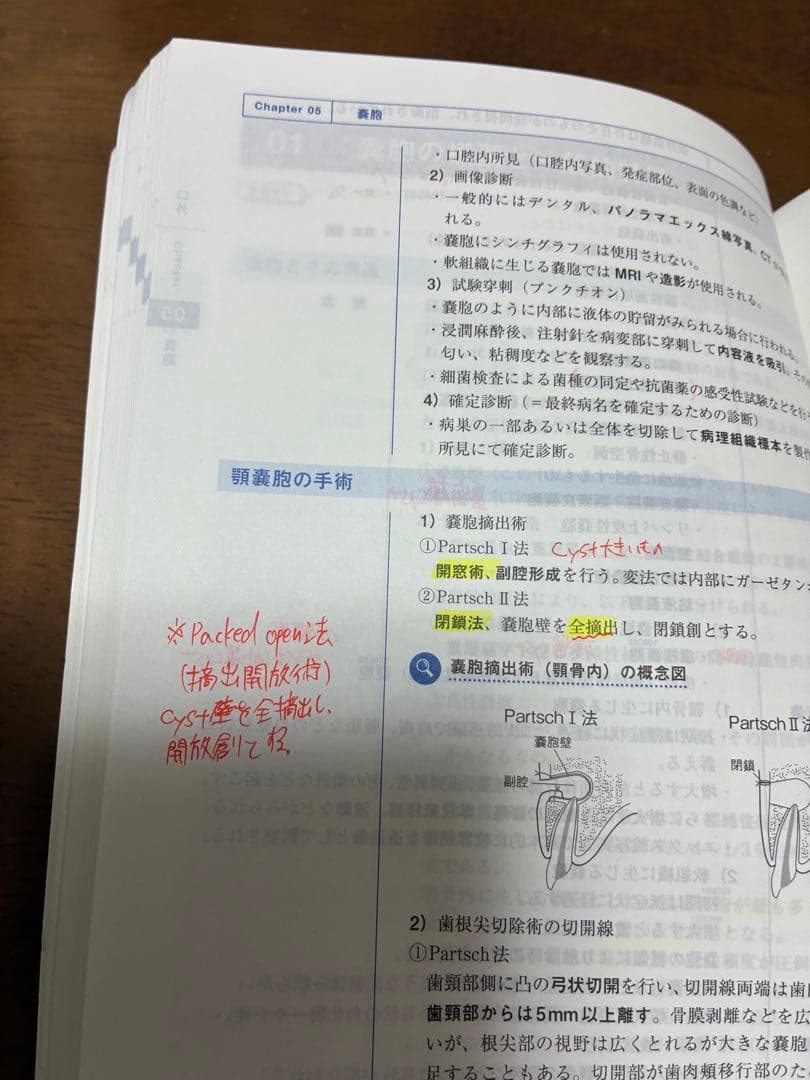 Chapter 05 嚢胞
・口腔内所見（口腔内写真、発症部位、表面の色調など）
2）画像診断
・一般的にはデンタル、パノラマエックス線写真、CT
れる。
・嚢胞にシンチグラフィは使用されない。
・軟組織に生じる嚢胞ではMRIや造影が使用される。
3）試験穿刺（プンクチオン）
・嚢胞のように内部に液体の貯留がみられる場合に行われる。
・浸潤麻酔後、注射針を病変部に穿刺して内容液を吸引。
匂い、粘稠度などを観察する。
・細菌検査による菌種の同定や抗菌薬の感受性試験などを行
4）確定診断（＝最終病名を確定するための診断）
・病巣の一部あるいは全体を切除して病理組織標本を製作
所見にて確定診断。
顎嚢胞の手術
1）嚢胞摘出術
①Partsch Ⅰ法 Cyst大きいもの
開窓術、副腔形成を行う。変法では内部にガーゼタン
②Partsch Ⅱ法
閉鎖法、嚢胞壁を全摘出し、閉鎖創とする。
※Packed open法
（摘出開放術）
Cyst壁を全摘出し、
開放創とする
嚢胞摘出術（顎骨内）の概念図
Partsch Ⅰ法
Partsch Ⅱ法
嚢胞壁
副腔
閉鎖
2）歯根尖切除術の切開線
①Partsch法
歯頸部側に凸の弓状切開を行い、切開線両端は歯
歯頸部からは5mm以上離す。骨膜剥離などを広
いが、根尖部の視野は広くとれるが大きな嚢胞
足することもある。切開部が歯肉頰移行部のた
口外
Chapter
05
嚢胞